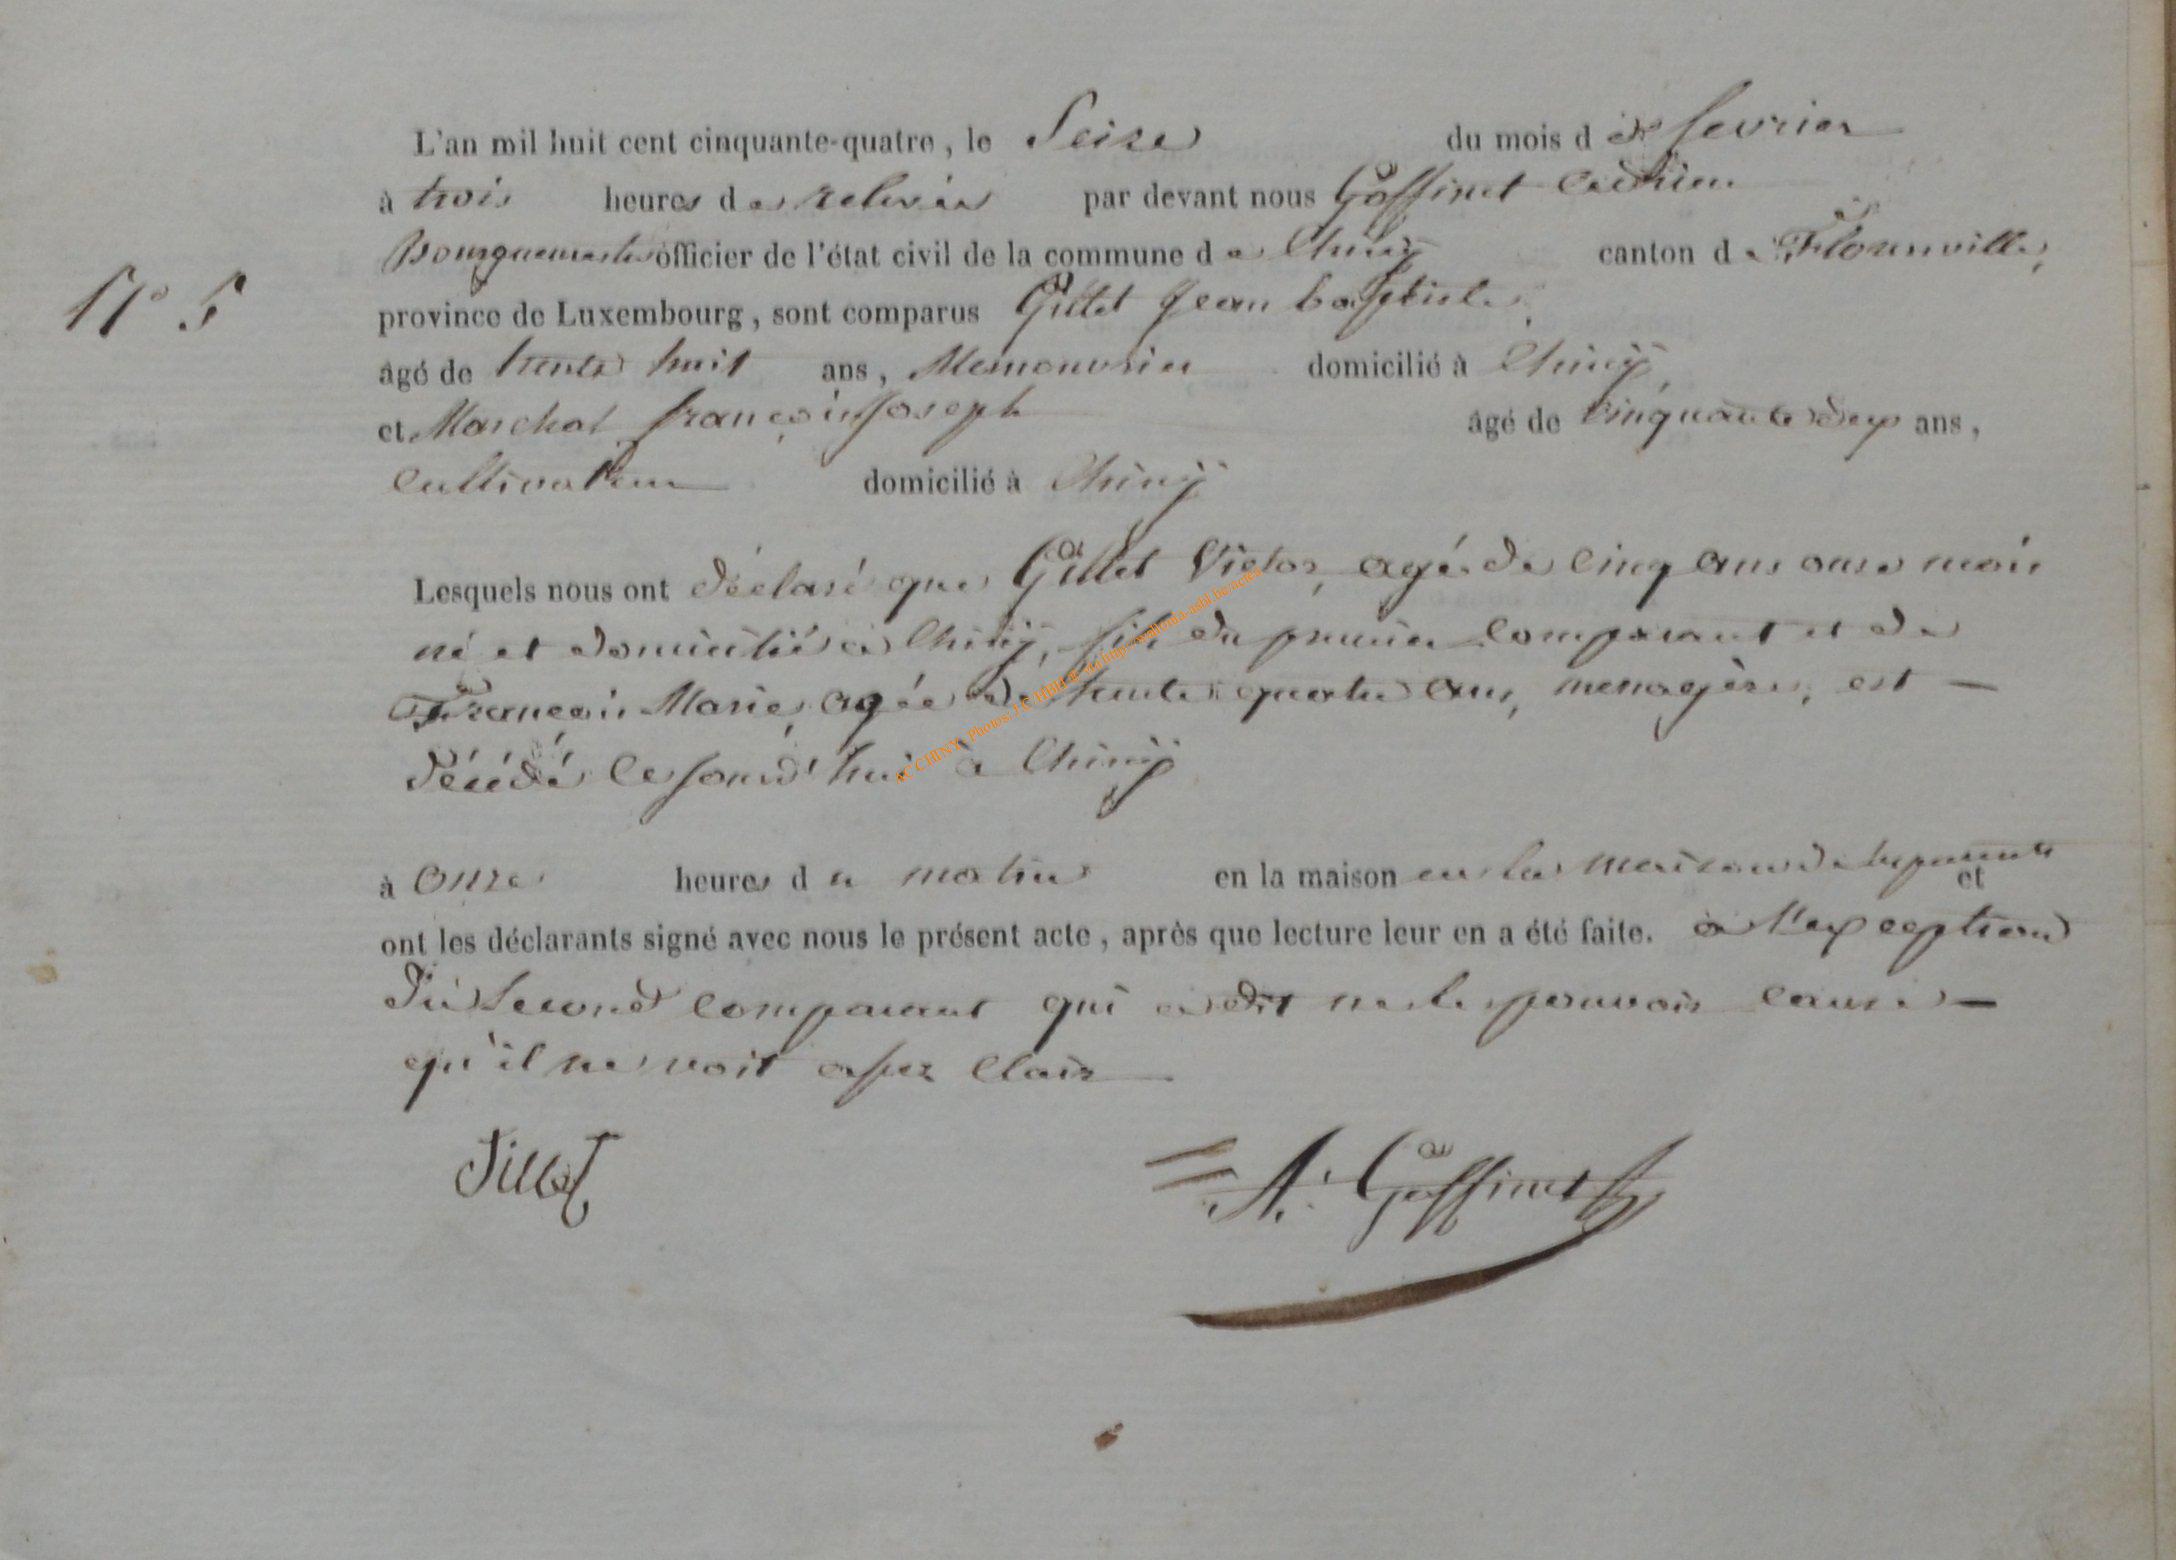 L'an mil huit cent cinquante-quatre, le Seize du mois d de fevrier
à trois heures de relevée par devant nous Goffinet Adrien
Bourguemestre officier de l'état civil de la commune de Chiny canton de Florenville,
N° 5
province de Luxembourg, sont comparus Gillet Jean baptiste,
âgé de trente huit ans, Menouvrier domicilié à Chiny,
et Marchal françois Joseph âgé de cinquante deux ans,
Cultivateur domicilié à Chiny
Lesquels nous ont déclaré que Gillet Victor, agé de cinq ans onze mois
né et domicilié à Chiny, fils du premier comparant et de
François Marie, agée de trente quatre ans, menagère, est —
décédé cejourd'hui à Chiny
à onze heures du matin en la maison en la maison de ses parents et
ont les déclarants signé avec nous le présent acte, après que lecture leur en a été faite. à l'exception
du second comparant qui a dit ne le pouvoir cause —
qu'il ne voit assez clair
Gillet A. Goffinet
AC CHINY - Photos J.C HBH via http://wallonia-asbl.be/actes